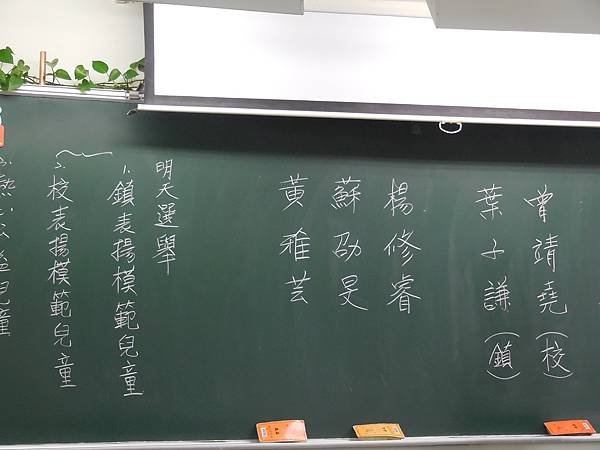 曾靖堯(校)
葉子謙(鎮)
楊修睿
蘇劭旻
黃雅芸
明天選舉
1.鎮表揚模範兒童
2.校表揚模範兒童
公益兒童